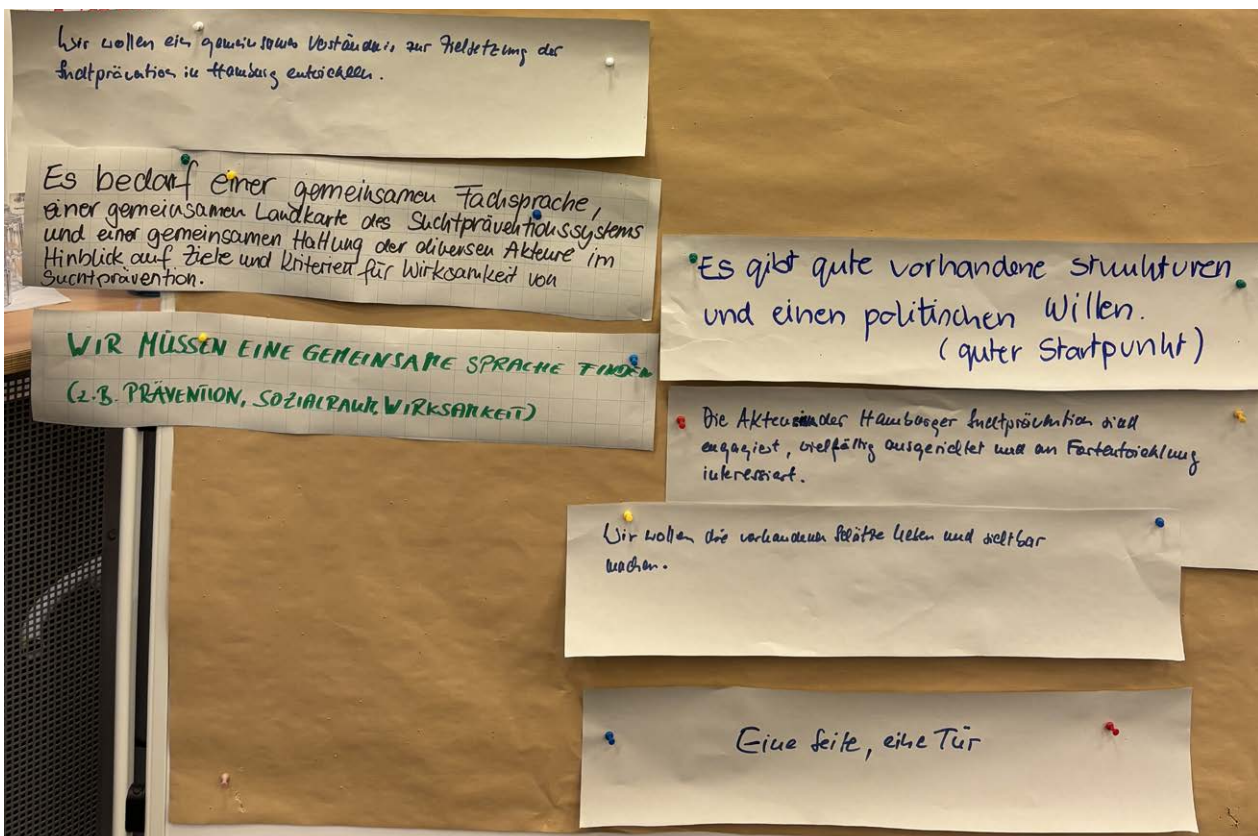 Wir wollen ein gemeinsames Verständnis zur Zielsetzung der
Suchtprävention in Hamburg entwickeln.
Es bedarf einer gemeinsamen Fachsprache,
einer gemeinsamen Landkarte des Suchtpräventionssystems
und einer gemeinsamen Haltung der diversen Akteure im
Hinblick auf Ziele und Kriterien für Wirksamkeit von
Suchtprävention.
WIR MÜSSEN EINE GEMEINSAME SPRACHE FINDEN
(z.B. PRÄVENTION, SOZIALRAUM, WIRKSAMKEIT)
Es gibt gute vorhandene Strukturen
und einen politischen Willen.
(guter Startpunkt)
Die Akteure in der Hamburger Suchtprävention sind
engagiert, vielfältig ausgerichtet und an Fortentwicklung
interessiert.
Wir wollen die vorhandenen Schätze heben und sichtbar
machen.
Eine Seite, eine Tür